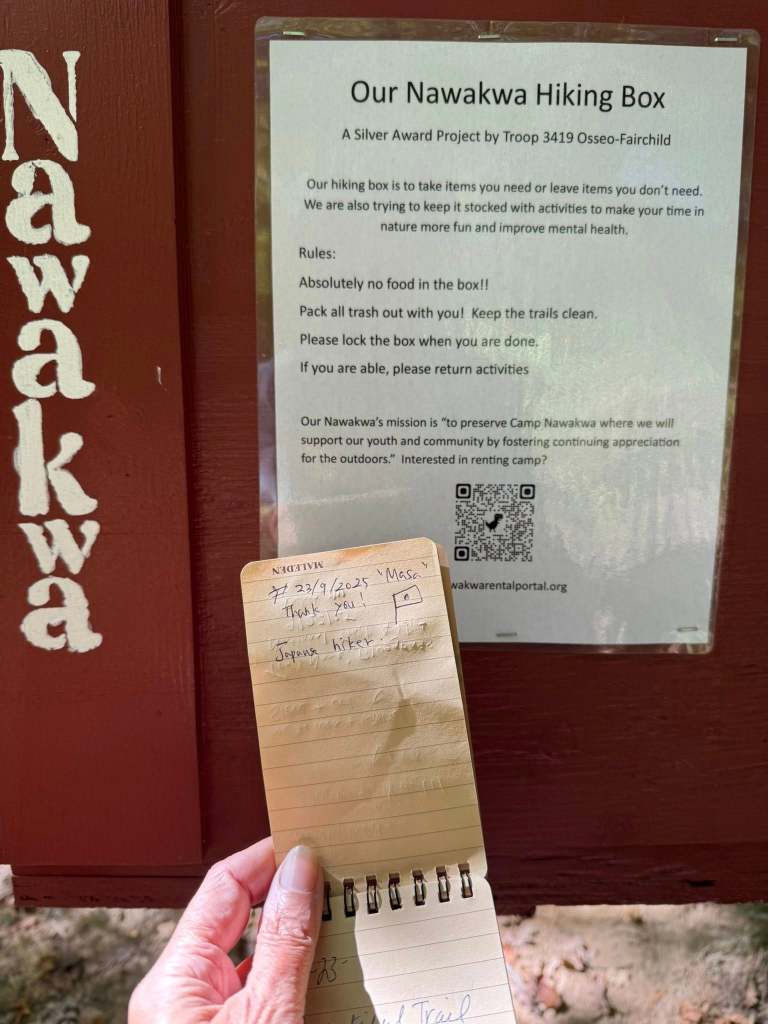 Nawakwa
Our Nawakwa Hiking Box
A Silver Award Project by Troop 3419 Osseo-Fairchild
Our hiking box is to take items you need or leave items you don't need.
We are also trying to keep it stocked with activities to make your time in
nature more fun and improve mental health.
Rules:
Absolutely no food in the box!!
Pack all trash out with you! Keep the trails clean.
Please lock the box when you are done.
If you are able, please return activities
Our Nawakwa's mission is "to preserve Camp Nawakwa where we will
support our youth and community by fostering continuing appreciation
for the outdoors." Interested in renting camp?
wakwarentalportal.org
MALEDEN
23/9/2025 "Masa"
Thank you!
hiker.
-23-
Trail